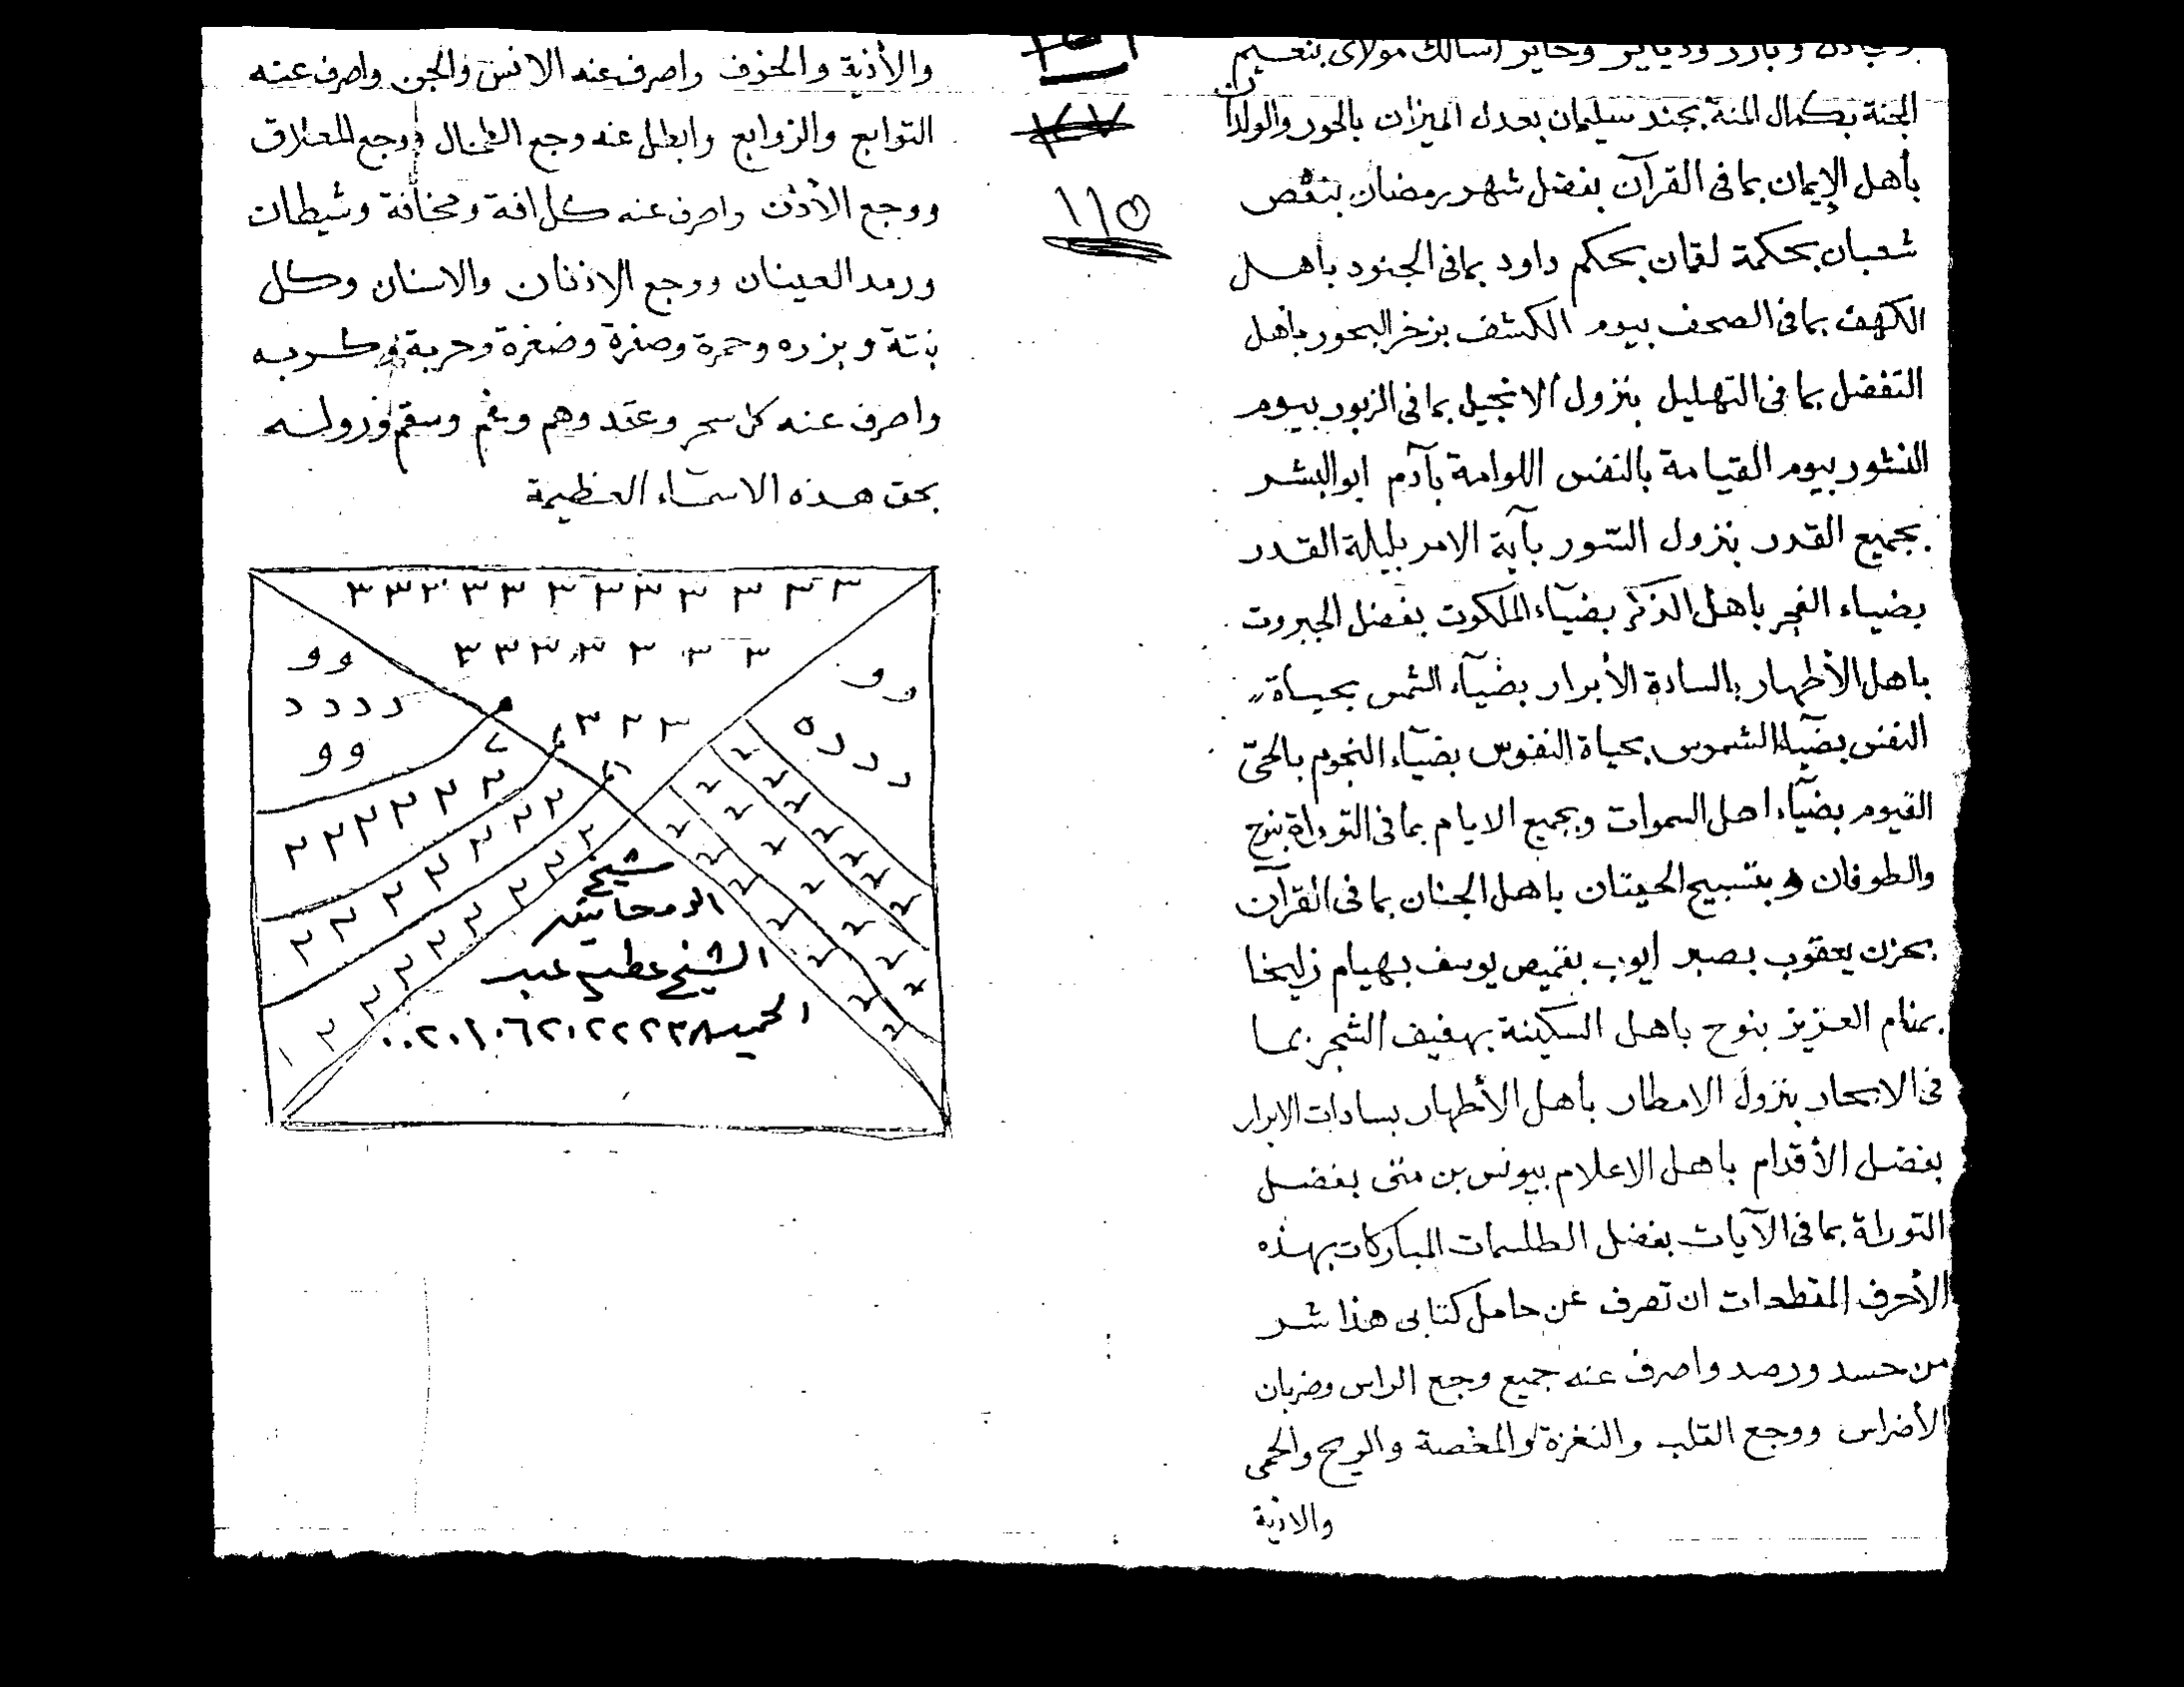 اسالك مولاى بنعيم
الجنة بكمال المنة بجند سليمان بعدل الميزان بالحور والولدان
بأهل الإيمان بما فى القرآن بفضل شهر رمضان بنقص
شعبان بحكمة لقمان بحكم داود بما فى الجنود باهل
الكهف بما فى الصحف بيوم الكشف بزخر البحور باهل
التفضل بما فى التهليل بنزول الانجيل بما فى الزبور بيوم
النشور بيوم القيامة بالنفس اللوامة بآدم ابو البشر
بجميع القدر بنزول السور بآية الامر بليلة القدر
بضياء الفجر باهل الذكر بضيآء الملكوت بفضل الجبروت
باهل الأطهار بالسادة الأبرار بضيآء الشمس بحياة
النفس بضيآء الشموس بحياة النفوس بضيآء النجوم بالحىّ
القيوم بضيآء اهل السموات وبجميع الايام بما فى التوراة بنوح
والطوفان وبتسبيح الحيتان باهل الجنان بما فى القرآن
بحزن يعقوب بصبر أيوب بقميص يوسف بهيام زليخا
بمنام العزيز بنوح باهل السكينة بهفيف الشجر بما
فى الابحار بنزول الامطار بأهل الأطهار بسادات الابرار
بفضل الأقدام باهل الاعلام بيونس بن متى بفضل
التوراة بما فى الآيات بفضل الطلسمات المباركات بهذه
الأحرف المقطعات ان تصرف عن حامل كتابى هذا شر
من حسد ورصد واصرف عنه جميع وجع الراس وضربان
الأضراس ووجع القلب والنغزة والمغصة والريح والحمى
والاذية
١١٥
والأذية والخوف واصرف عنه الانس والجن واصرف عنه
التوابع والزوابع وابطل عنه وجع الطحال ووجع المعلاق
ووجع الأذن واصرف عنه كل افة ومخافة وشيطان
ورمد العينان ووجع الاذنان والاسنان وكل
وبزره وحمرة وصفرة وضغرة وحربة وكربه
واصرف عنه كل سحر وعقد وهم وغم وسقم
بحق هذه الاسمآء العظيمة
٣ ٣ ٣ ٣ ٣ ٣ ٣ ٣ ٣ ٢ ٣ ٣
٣ ٣ ٣ ٣ ٣ ٣ ٣
٣ ٢ ٣
و و
د د د د
و و
شيخ
الروحانيه
الشيخ عطيه عبد
الحميد ٠٠٢٠١٠٦٢٠٢٢٢٢٣٨